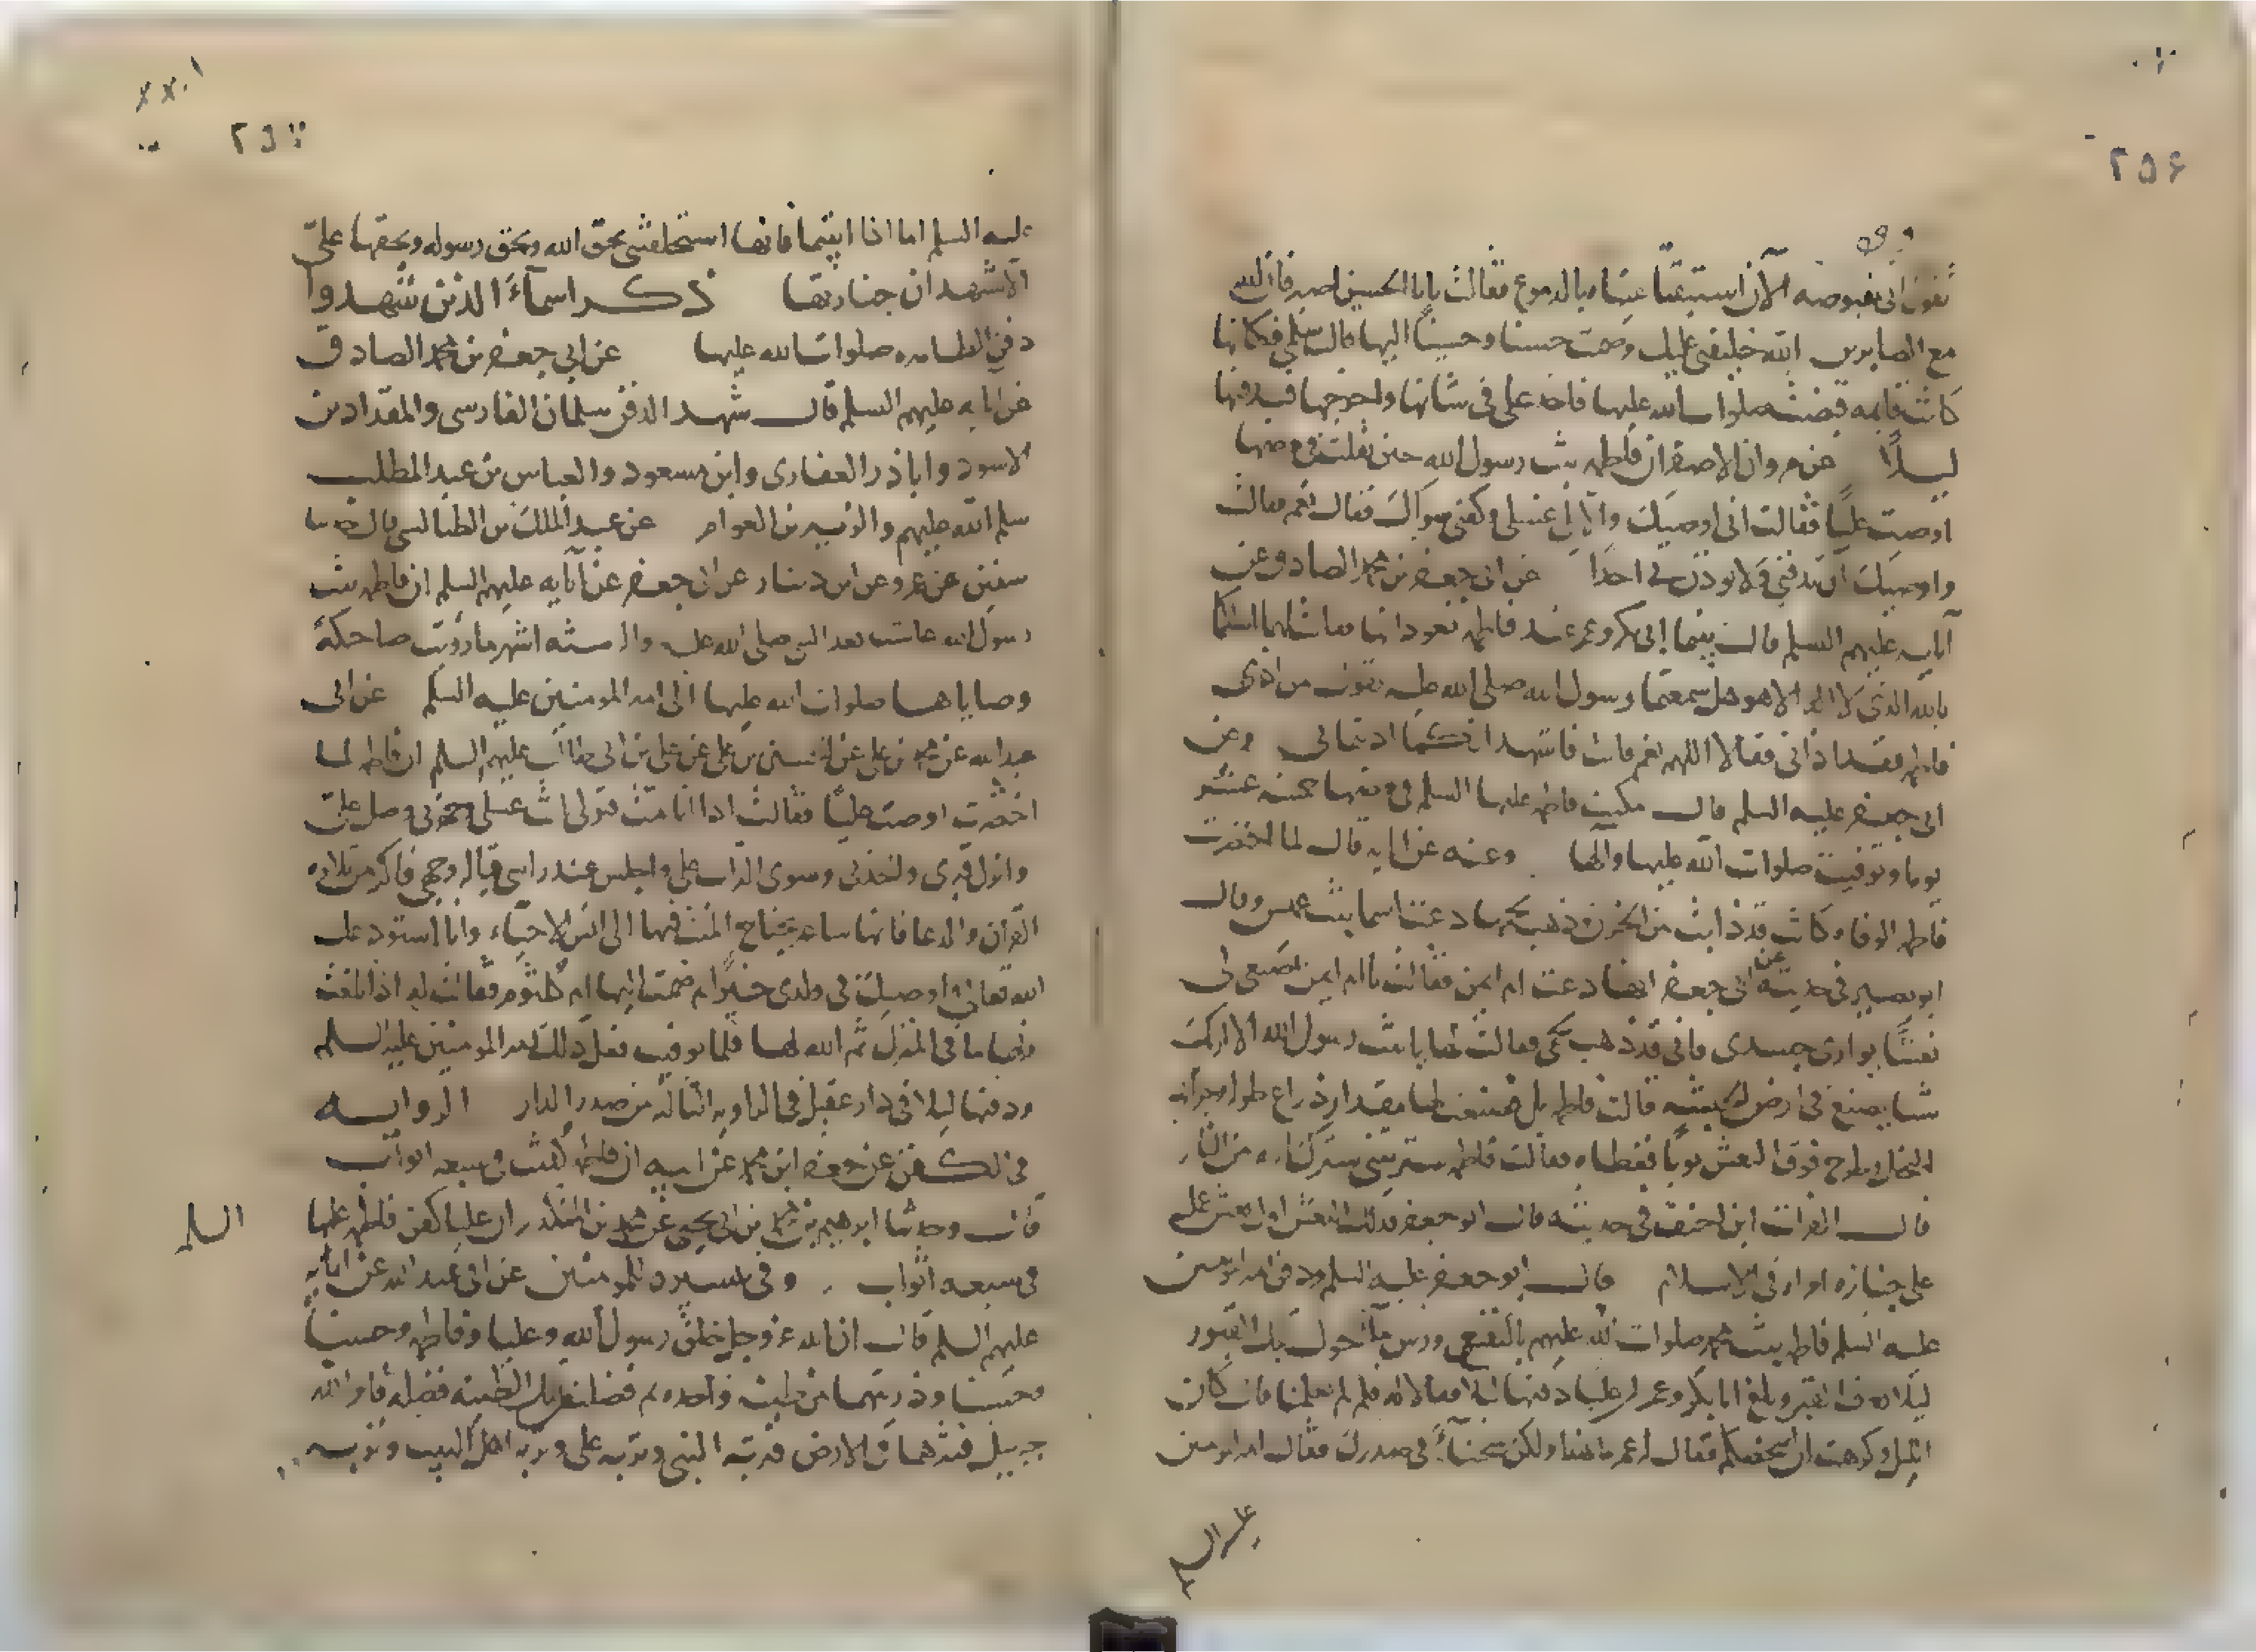 ٢٥۶
مع الصابرين الله خليفتي عليك وضمت حسنا وحسينا اليها
كانت قبضت صلوات الله عليها فاخذ علي في شانها واخرجها فدفنها
ليلا عن مروان الاصفر ان فاطمه بنت رسول الله حين ثقلت في مرضها
اوصت عليا فقالت اني اوصيك وان لا يلي غسلي وكفني سواك فقال نعم فقالت
واوصيك ان تدفنني ولا توذن بي احدا عن ابي جعفر بن محمد الصادق عن
آبايه عليهم السلم قال بينما ابي بكر وعمر عند فاطمه
بالله الذي لا اله الا هو هل سمعتما رسول الله صلى الله عليه يقول من اذى
فاطمه فقد اذاني فقالا اللهم نعم قالت فاشهد انكما اذيتماني وعن
ابي جعفر عليه السلم قال مكثت فاطمه عليها السلم في مرضها خمسه عشر
يوما وتوفيت صلوات الله عليها وعنه عن ابايه قال لما احتضرت
فاطمه الوفاه كانت قد ذابت من الحزن وذهب لحمها دعت اسما بنت عميس وقال
ابو بصير في حديثه عن ابي جعفر انها دعت ام ايمن فقالت يا ام ايمن اصنعي لي
نعشا يواري جسدي فاني قد ذهب لحمي فقالت لها يا بنت رسول الله الا اريك
شيا يصنع في ارض الحبشه قالت فاطمه بلى فصنعت لها مقدار ذراع طولا
فوق النعش ثوبا فغطاه فقالت فاطمه ستريتني سترك الله من النار
قال الفرات ابن احنف في حديثه قال ابو جعفر فذلك النعش اول نعش عمل
على جنازه امراه في الاسلام قال ابو جعفر عليه السلم ودفن امير المومنين
عليه السلم فاطمه بنت محمد صلوات الله عليهم بالبقيع ورش ما حول تلك القبور
وبلغ ابا بكر وعمر
الليل وكرهت ان اشخصكم فقال له عمر ما هذا ولكن شحناء في صدرك فقال امير المومنين
عليه السلم
٢٥٧
عليه السلم اما اذا ابيتما فانها استحلفتني بحق الله وبحق رسوله وبحقها علي
الا تشهدان جنازتها ذكر اسماء الذين شهدوا
دفن فاطمه صلوات الله عليها عن ابي جعفر بن محمد الصادق
عن ابايه عليهم السلم قال شهد الدفن سلمان الفارسي والمقداد بن
الاسود واباذر الغفاري وابن مسعود والعباس بن عبد المطلب
سلم الله عليهم والزبير بن العوام عن عبد الملك بن الطيالسي قال
سفين عن عمرو عن ابن دينار عن ابي جعفر عن آبايه عليهم السلم ان فاطمه بنت
رسول الله عاشت بعد النبي صلى الله عليه واله سته اشهر ما رؤيت ضاحكة
وصاياها صلوات الله عليها الى امير المومنين عليه السلم عن ابي
عبد الله عن محمد بن علي عن الحسين بن علي عن علي بن ابي طالب عليهم السلم ان فاطمه لما
احتضرت اوصت عليا فقالت اذا انا مت فتولى انت غسلي وجهزني وصل علي
وانزل قبري والحدني وسوى التراب علي واجلس عند راسي قبالة وجهي فاكثر من تلاوه
القرآن والدعا فانها ساعه يحتاج الميت فيها الى انس الاحياء وانا استودعك
الله تعالى واوصيك في ولدي خيرا ثم ضمت اليها ام كلثوم فقالت له اذا بلغت
فلها ما في المنزل ثم الله لها فلما توفيت فعل ذلك امير المومنين عليه السلم
ودفنها ليلا في دار عقيل في الزاويه الثالثه من صدر الدار الروايه
في الكفن عن جعفر ابن محمد عن ابيه ان فاطمه كفنت في سبعه اثواب
قال وحدثنا ابرهيم بن محمد بن ابي يحيى عن محمد بن المنكدر ان عليا كفن فاطمه عليها
السلم
في سبعه اثواب وفي للمومنين عن ابي عبد الله عن ابايه
عليهم السلم قال ان الله عز وجل خلق رسول الله وعليا وفاطمه وحسنا
وحسينا وذريتهما من طينه واحده ثم فضلت من تلك الطينه فضله فامر الله
جبريل فنثرهما في الارض فتربه النبي وتربه علي وتربه اهل البيت وتربه